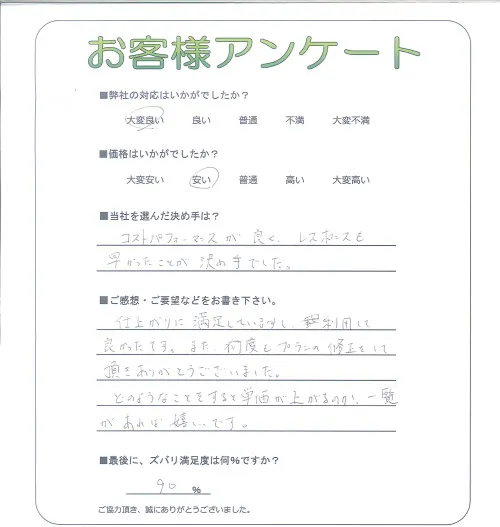 お客様アンケート
■弊社の対応はいかがでしたか？
大変良い 良い 普通 不満 大変不満
■価格はいかがでしたか？
大変安い 安い 普通 高い 大変高い
■当社を選んだ決め手は？
コストパフォーマンスが良く、レスポンスも
早かったことが決め手でした。
■ご感想・ご要望などをお書き下さい。
仕上がりに満足していますし、利用して
良かったです。また、何度もプランの修正をして
頂きありがとうございました。
どのようなことをすると単価が上がるのか、一覧
があれば嬉しいです。
■最後に、ズバリ満足度は何％ですか？
90 ％
ご協力頂き、誠にありがとうございました。